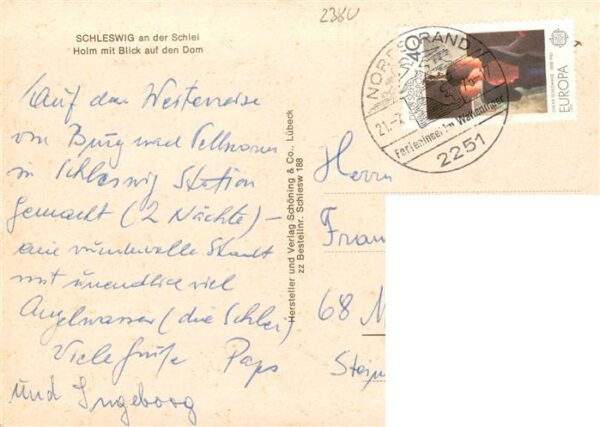 2380
SCHLESWIG an der Schlei
Holm mit Blick auf den Dom
Auf der Weiterreise
von Burg nach Pellworm
in Schleswig Station
gemacht (2 Nächte) –
eine wundervolle Stadt
mit unendlich viel
Angelwasser (die Schlei)
Viele Grüße Paps
und Ingeborg
Hersteller und Verlag Schöning & Co., Lübeck
zz Bestellnr. Schlesw 188
NORDSTRAND
21.-7.
Ferieninsel im Wattenmeer
2251
40
EUROPA
Herrn
Fran
68 M
Stein